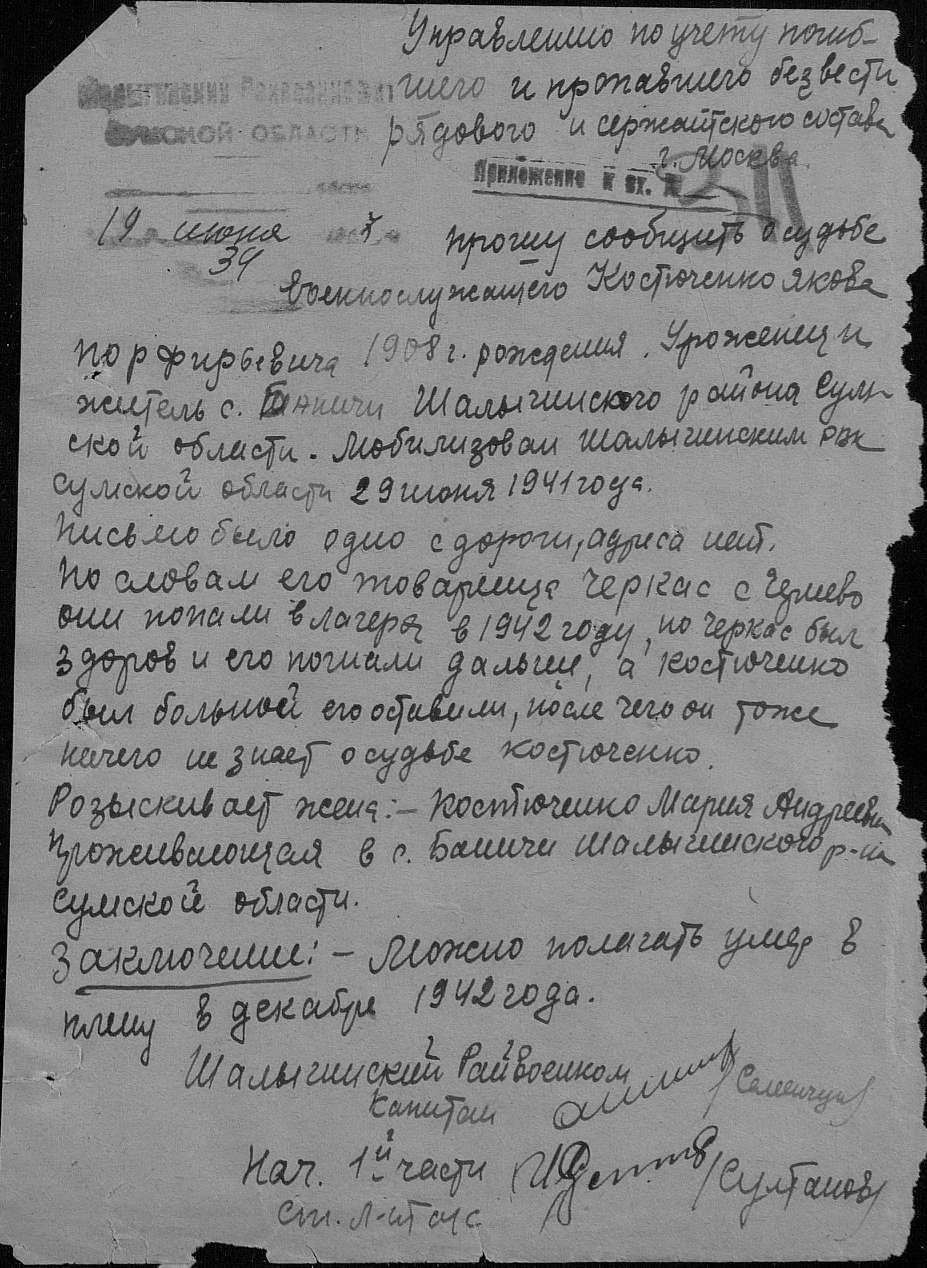 Управлению по учету погиб-
шего и пропавшего без вести
рядового и сержантского состава
г. Москва.
Шалыгинский Райвоенкомат
Сумской области
Приложение к вх. №
19 июня
34
прошу сообщить о судьбе
военнослужащего Костюченко Якова
Порфирьевича 1908 г. рождения. Уроженец и
житель с. Баничи Шалыгинского района Сум-
ской области. Мобилизован Шалыгинским РВК
Сумской области 29 июня 1941 года.
Письмо было одно с дороги, адреса нет.
По словам его товарища Черкас с
они попали в лагеря в 1942 году, но Черкас был
здоров и его погнали дальше, а Костюченко
был больной его оставили, после чего он тоже
ничего не знает о судьбе Костюченко.
Розыскивает жена:- Костюченко Мария Андреевна
проживающая в с. Баничи Шалыгинского р-на
Сумской области.
Заключение: - Можно полагать умер в
плену в декабре 1942 года.
Шалыгинский Райвоенком
капитан
Нач. 1й части /Султанов/
ст. л-т а/с